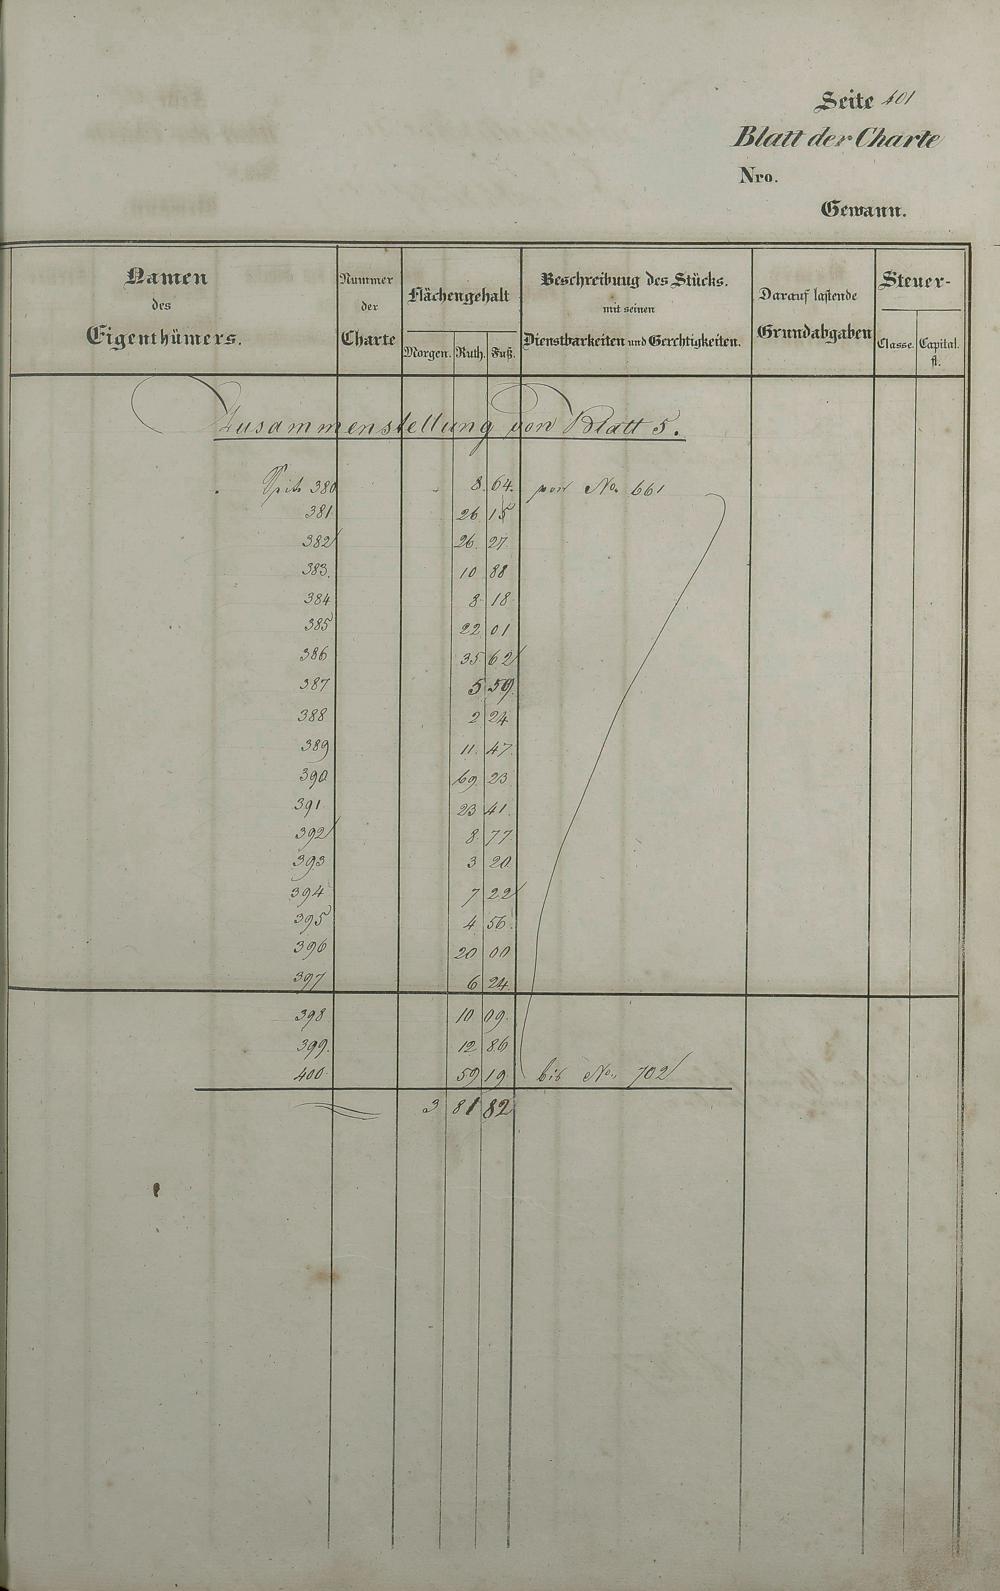 Seite 401
Blatt der Charte
Nro.
Gewann.
Namen des Eigenthümers.
Nummer der Charte
Flächengehalt
Morgen. Ruth. Fuß.
Beschreibung des Stücks. mit seinen Dienstbarkeiten und Gerechtigkeiten.
Darauf lastende Grundabgaben
Steuer-
Classe. Capital. fl.
Zusammenstellung von Blatt 5.
Seite 380 8. 64. von No. 661
381 26 15
382 26. 27.
383. 10 88
384 8 18
385 22 01
386 35 62
387 5 59
388 2 24
389 11. 47.
390 69 23
391 23 41.
392 8. 77
393 3 20
394 7 22
395 4 56.
396 20 00
397 6 24.
398 10 09.
399. 12 86
400 59 19 bis No. 702
3 81 82